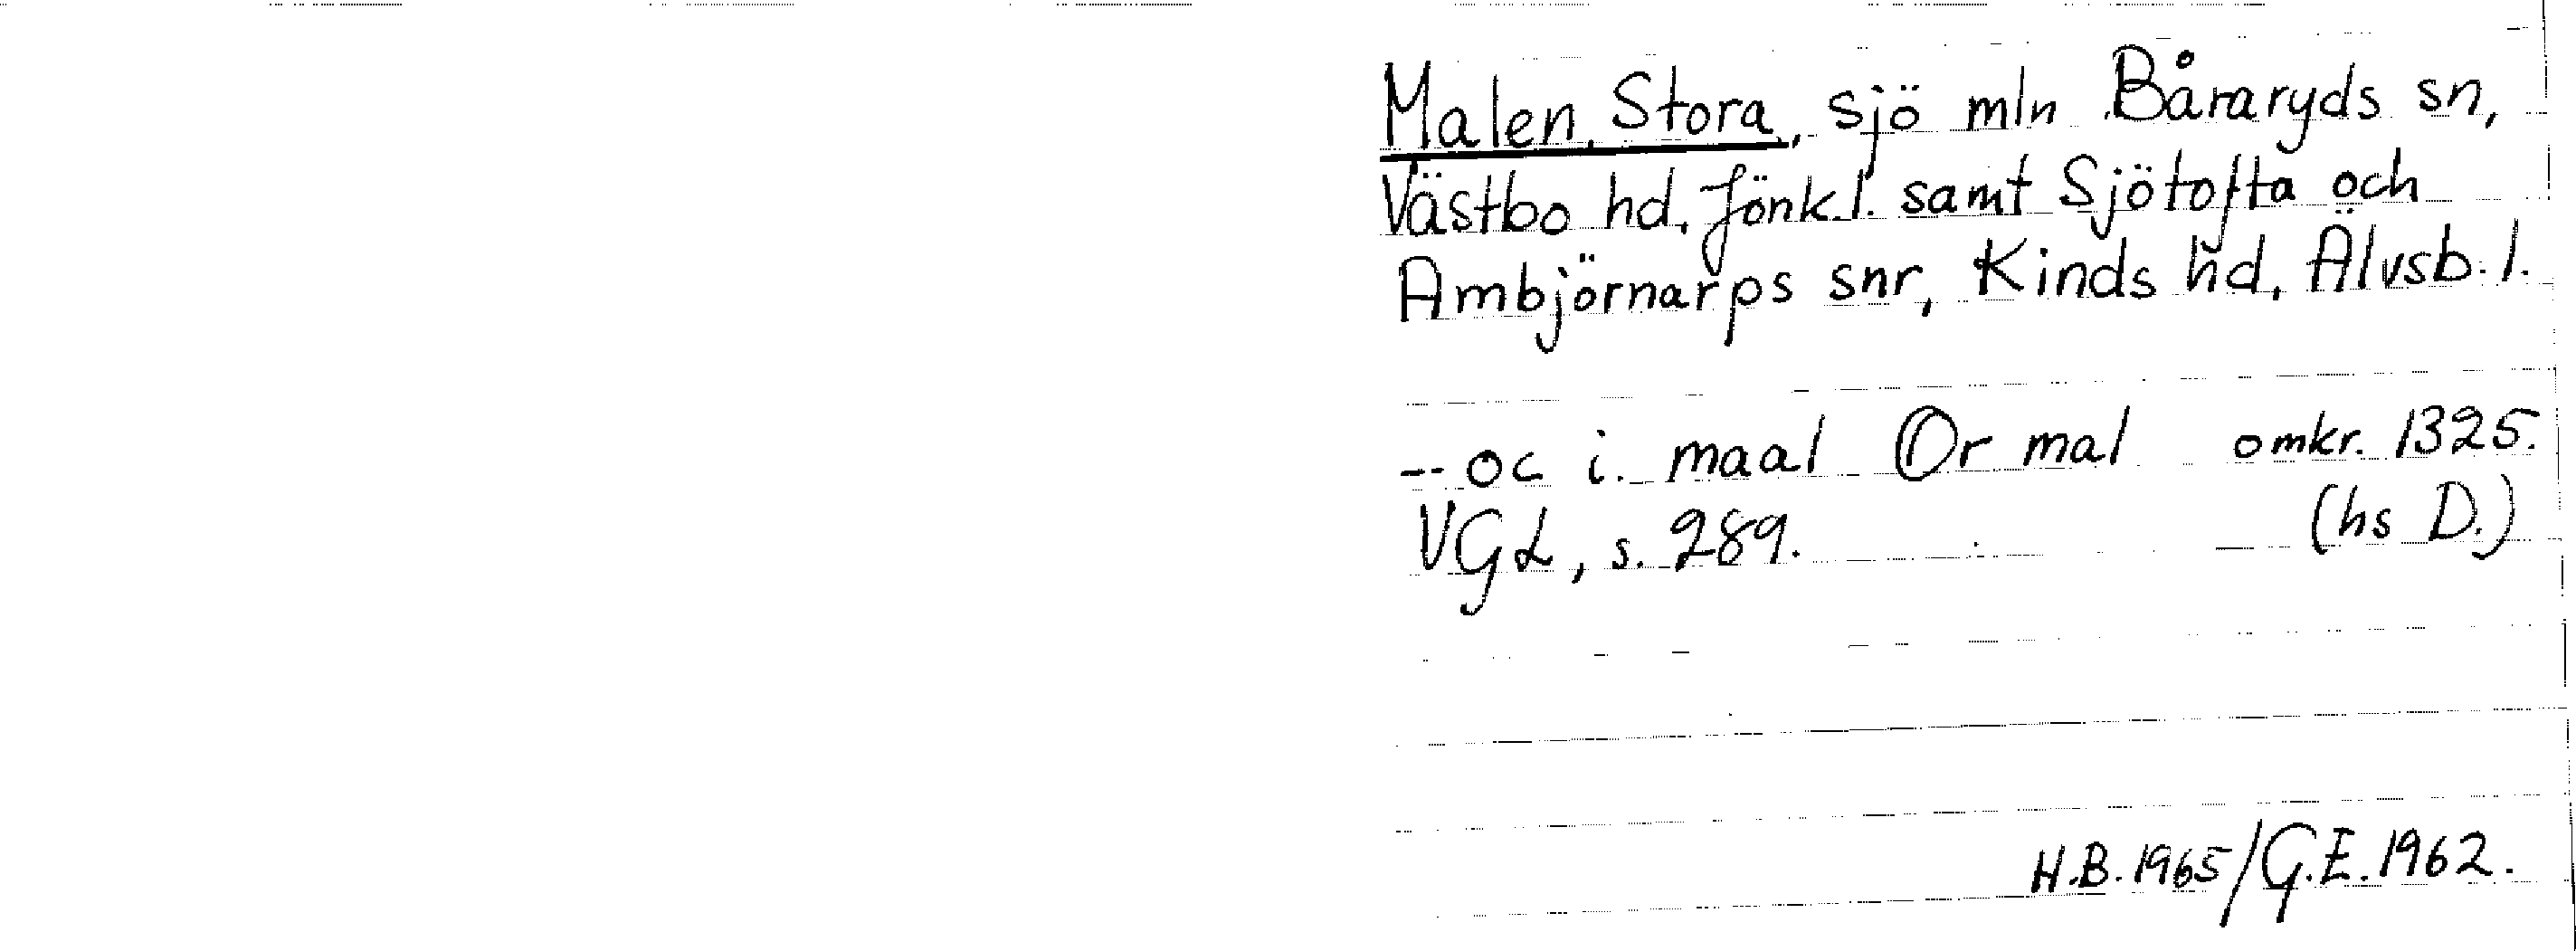 Malen, Stora, sjö mln Båraryds sn,
Västbo hd, Jönk.l. samt Sjötofta och
Ambjörnarps snr, Kinds hd, Älvsb.l.
-- oc i maal Or mal omkr. 1325.
VGL, s. 289. (hs D.)
H.B. 1965/G.E. 1962.